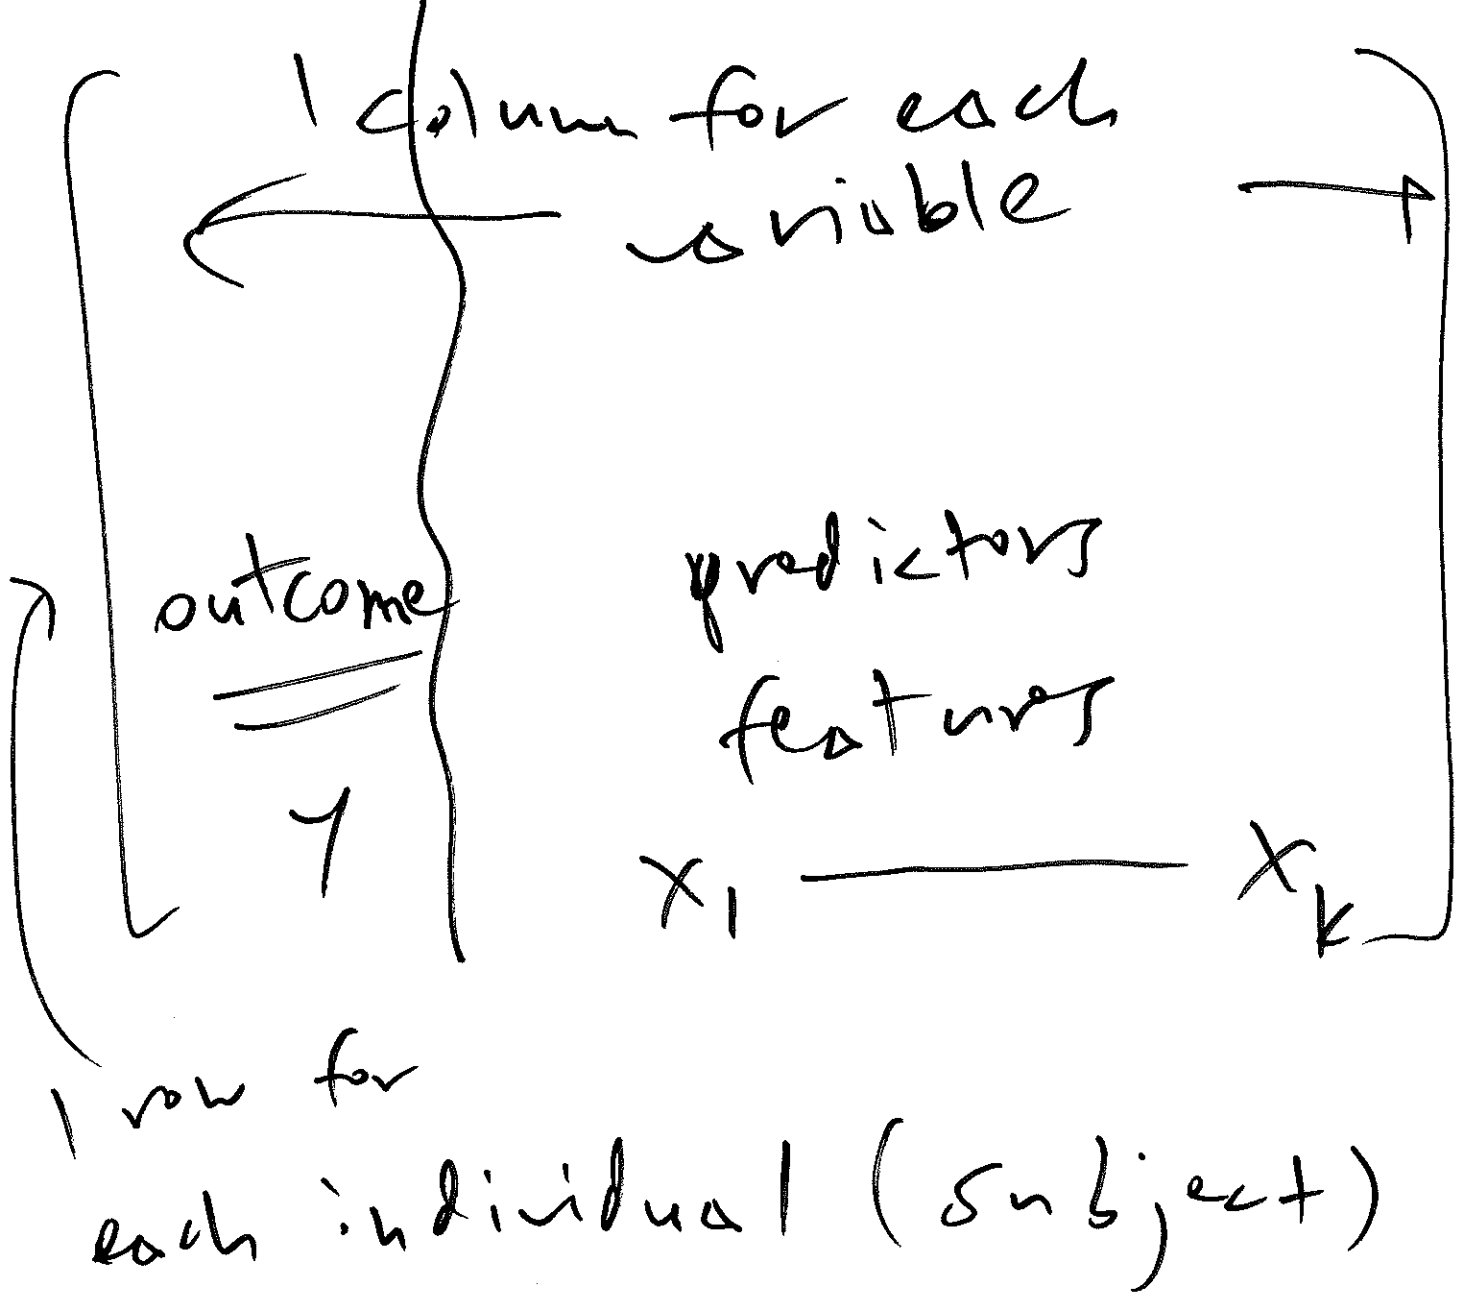 1 column for each
variable
outcome
predictors
features
y
x1 — xk
1 row for
each individual (subject)